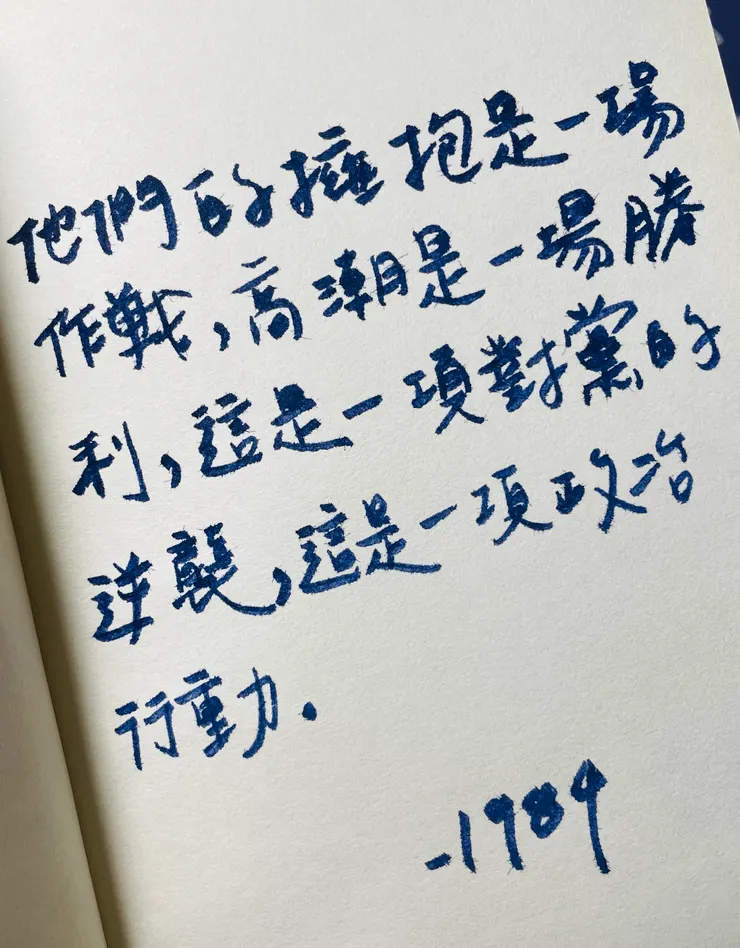 他們的擁抱是一場
作戰,高潮是一場勝
利,這是一項對黨的
逆襲,這是一項政治
行動.
-1984